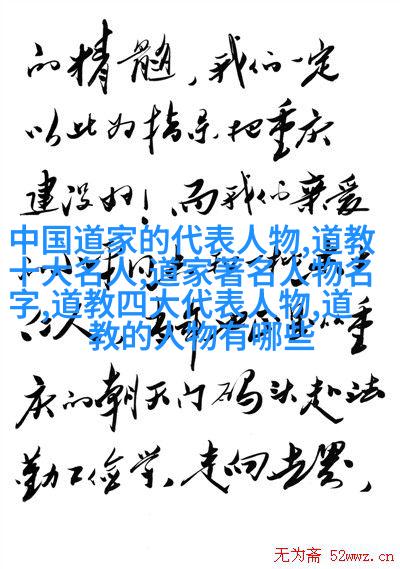 的精髓，我们一定
以此为指导把重庆
建设好！而我们亲爱
中国道家的代表人物,道教
十大名人,道家著名人物名
字,道教四大代表人物,道
教的人物有哪些
的人，重
庆的朝天门码头赴法
勤工俭学，走向世界，
无为斋 52wwz.cn